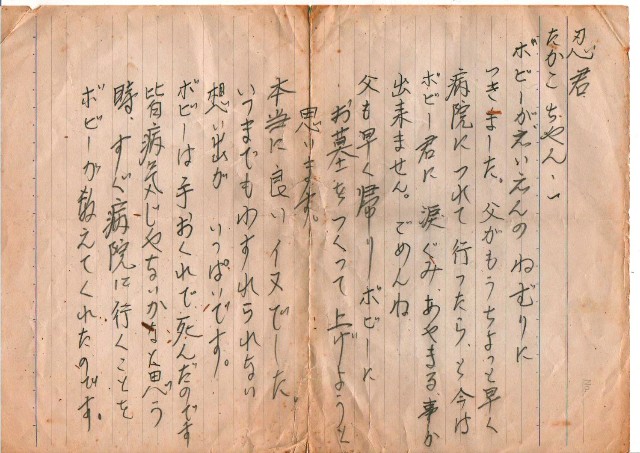 忍君
たかこちゃんへ
ボビーがえいえんのねむりに
つきました。父がもうちょっと早く
病院につれて行ったら、と今は
ボビー君に涙ぐみあやまる事しか
出来ません。ごめんね
父も早く帰りボビーに
お墓をつくって上げようと
思います。
本当に良いイヌでした。
いつまでもわすれられない
想い出がいっぱいです。
ボビーは手おくれで死んだのです
皆病気じゃないかなと思う
時、すぐ病院に行くことを
ボビーが教えてくれたのです。